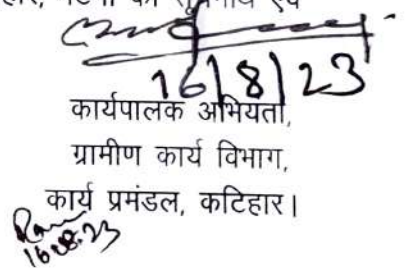 16/8/23
कार्यपालक अभियंता,
ग्रामीण कार्य विभाग,
कार्य प्रमंडल, कटिहार।
16.08.23